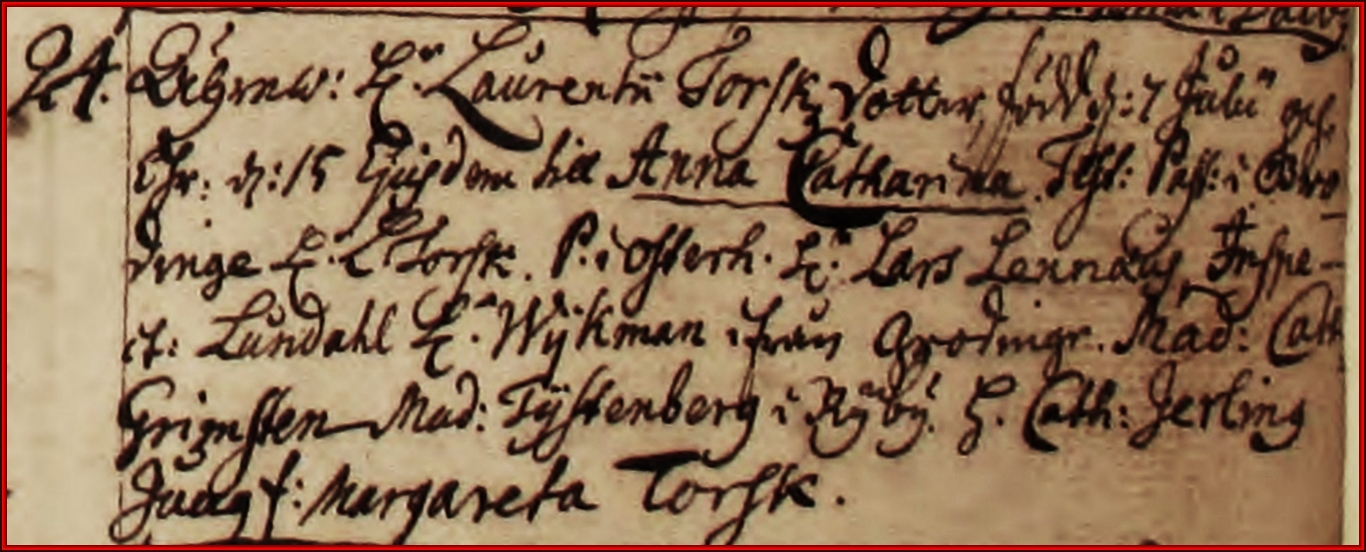 24. H: Laurentii Torsk Dotter, född d: 7 Julii och
Chr: d: 15 Ejusdem hel Anna Catharina. Test: Past: i Bro-
dinge H: L: Torsk. P. i Österh. H: Lars Lennæus, Inspe-
ct: Lundahl H: Wijkman ifrån Grodinge. Mad: Cath
Grimsten Mad: Tÿstenberg i Rÿbÿ. H. Cath: Jerling
Jungf: Margareta Torsk.